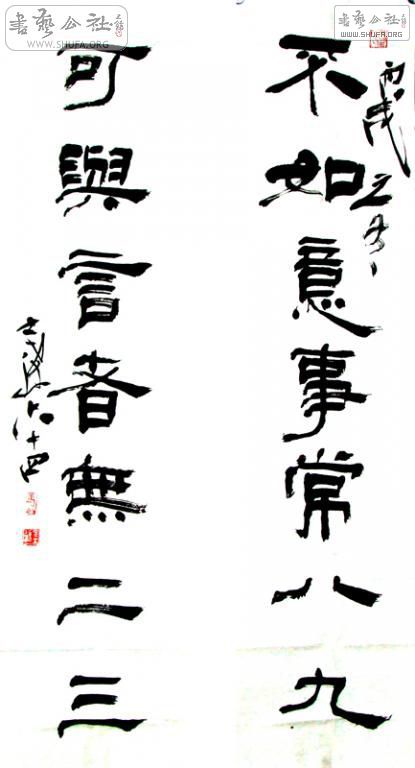 不如意事常八九
可與言者無二三
丙戌之冬
八十四
書藝公社
WWW.SHUFA.ORG
書藝公社
WWW.SHUFA.ORG